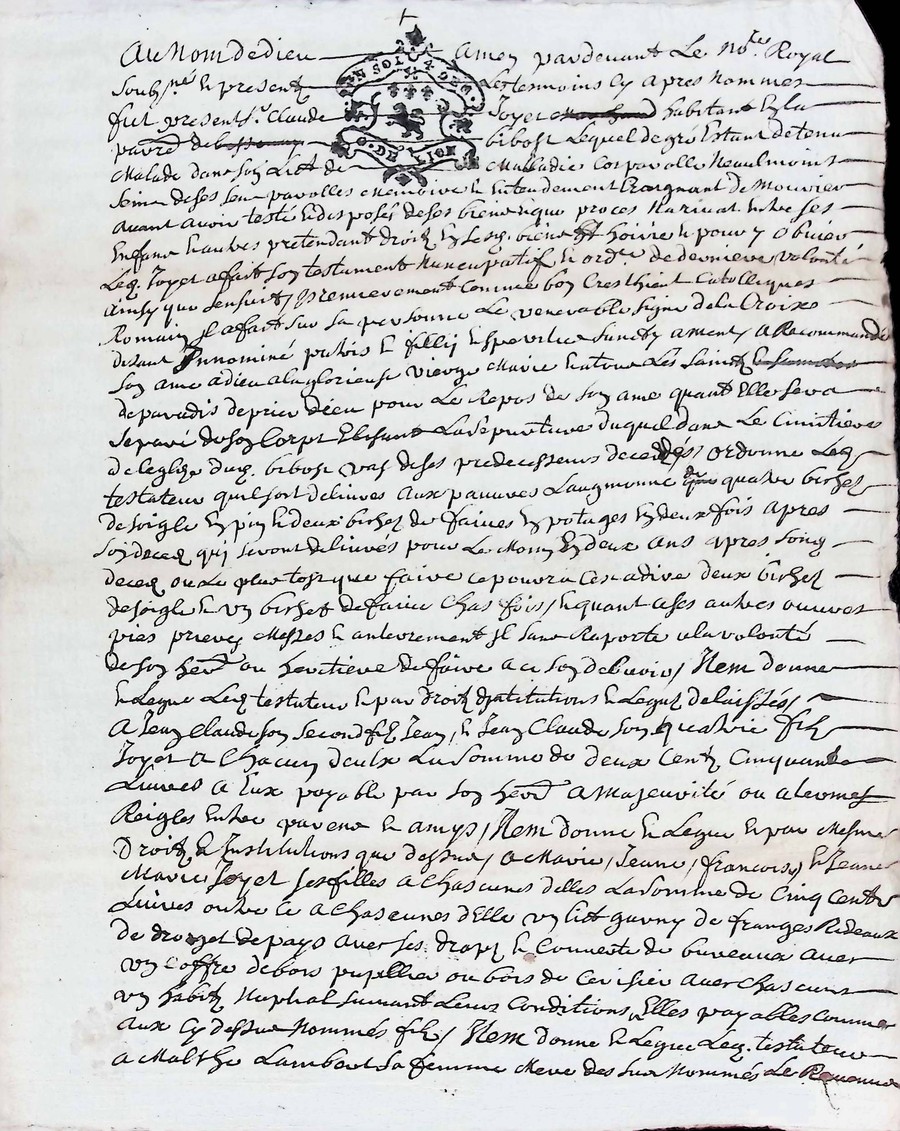 Au Nom de dieu Amen pardevant Le no.re Royal
Soubz.né & present Les tesmoins Cy apres Nommes
fut present S.r Claude Joyet habitant En la
parr.e de bibost Lequel de gré Estant detenu
Malade dans son Lict de Malladie Corporalle Neaulmoins
Sein de ses sen parolles Memoire & Entendement Craignant de Mourier
avant avoir testé & disposés de ses biens & que proces Narivat Entre ses
Enfans & autres pretendant droit En ses biens & hoirie & pour y obvier
Led. Joyet a fait Son testament Nuncupatif & ord.ce de derniere volonté
ainsy que sensuit / premierement Comme bon Cresthient Catolliques
Romain Il a fait Sur Sa personne Le venerable signe de la Croix
disant Innominé patris & fillij & Speritus Santy ament / a Recommandé
Son ame a dieu a la glorieuse vierge Marie & a tous Les Saints
de paradis de prier dieu pour Le Repos de Son ame quant Elle Sera
Separé de Son Corps Elisant La Sepeulture du quel dans Le Cimitiere
de leglize dud. bibost vas de ses predecesseurs decedés / ordonne Led.
testateur quil soit delivres aux pauvres Laugmonne quatre bichet
de Soigle En pin & deux bichet de faives En potages En deux fois apres
Son deces qui seront delivrés pour Le Moin En deux ans apres Song
deces ou Le plus tost que faire ce pourra Cest a dire deux bichet
de Soigle & un bichet de faive Chas fois / & quant a ses autres œuvres
pies prieres Messes & anterrement Il Sans Raporte a la volonté
de Son her.er ou heritiere de faire a ce Son debvoir / Item donne
& Legue Led. testateur & par droit dinstitutions & Legat delaissés /
A Jean Claude Son Second fils Jean, & Jean Claude Son quatrie fils
Joyet a Chacun deulx La Somme de deux Cent Cinquante
Livres a Eux payable par Son her.er a Majeurité ou a termes
Reigles Entre parens & amys / Item donne & Legue & par Mesme
Droit & Institutions que dessus / a Marie, Jeanne, francoise, & Jeanne
Marie Joyet Ses filles a Chascunes delles La Somme de Cinq Cents
Livres outre Ce a Chascunes dElle un lict garny de franges Rideaux
de droget de pays avec ses draps & Couverte de bureaux avec
un Coffre de bois pupllier ou bois de Cerisier avec Chascune
un habit Nuptial Suivant Leurs Conditions, Elles payables Comme
aux Cy dessus Nommés fils / Item donne & Legue Led. testateur
a Malthe Lambert Sa femme Mere des Sus Nommés Le Revenus